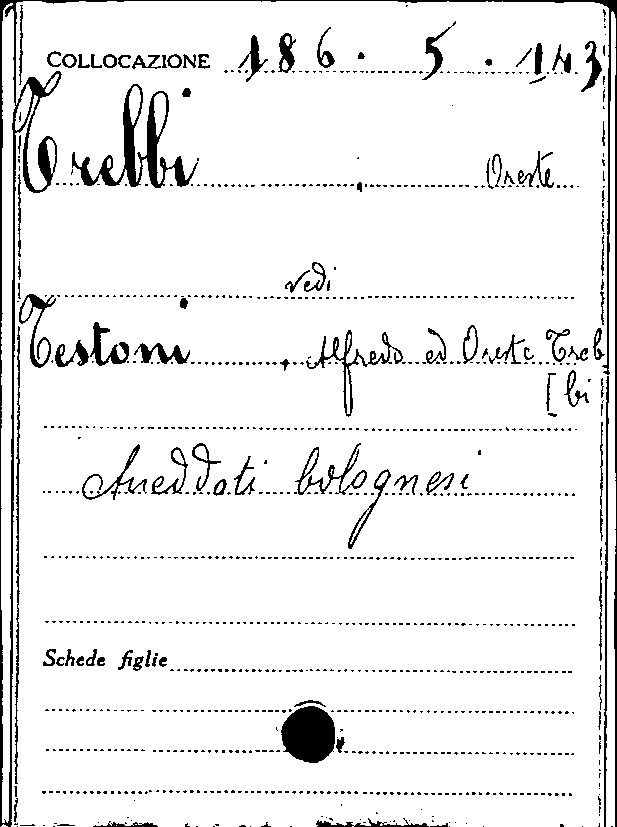 COLLOCAZIONE 186. 5. 143
Trebbi, Oreste
vedi
Testoni, Alfredo ed Oreste Treb-
[bi
Aneddoti bolognesi
Schede figlie